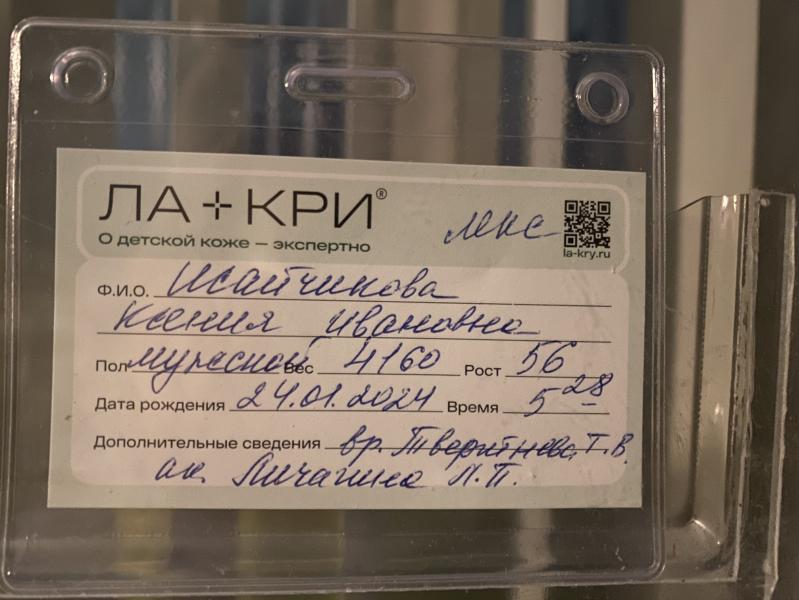 ЛА + КРИ®
О детской коже — экспертно
мкс
la-kry.ru
Ф.И.О. Исайчикова
Ксения Ивановна
Пол мужской Вес 4160 Рост 56
Дата рождения 24.01.2024 Время 5 28
Дополнительные сведения вр. Тверитнева Т.В.
ак. Личагина Л.П.